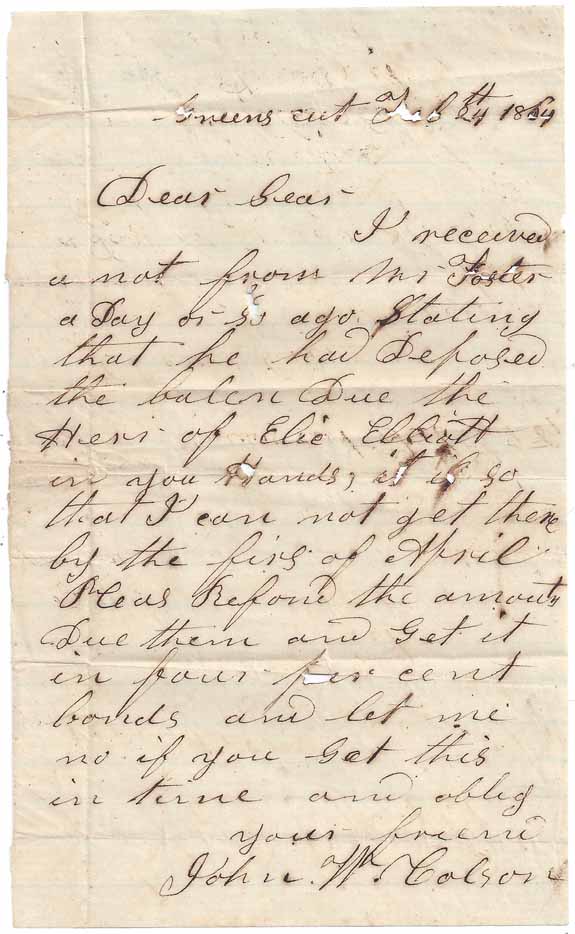 Greens cut Feb 24th 1864
Dear Sear
I received
a not from Mr Foster
a Day or so ago Stating
that he had Deposed
the balen Due the
Hers of Elie Elliott
in you Hands, it is so
that I can not get there
by the firs of April
Pleas Refond the amount
Due them and Get it
in four per cent
bonds and let me
no if you Get this
in time and oblig
your friend
John W. Colson